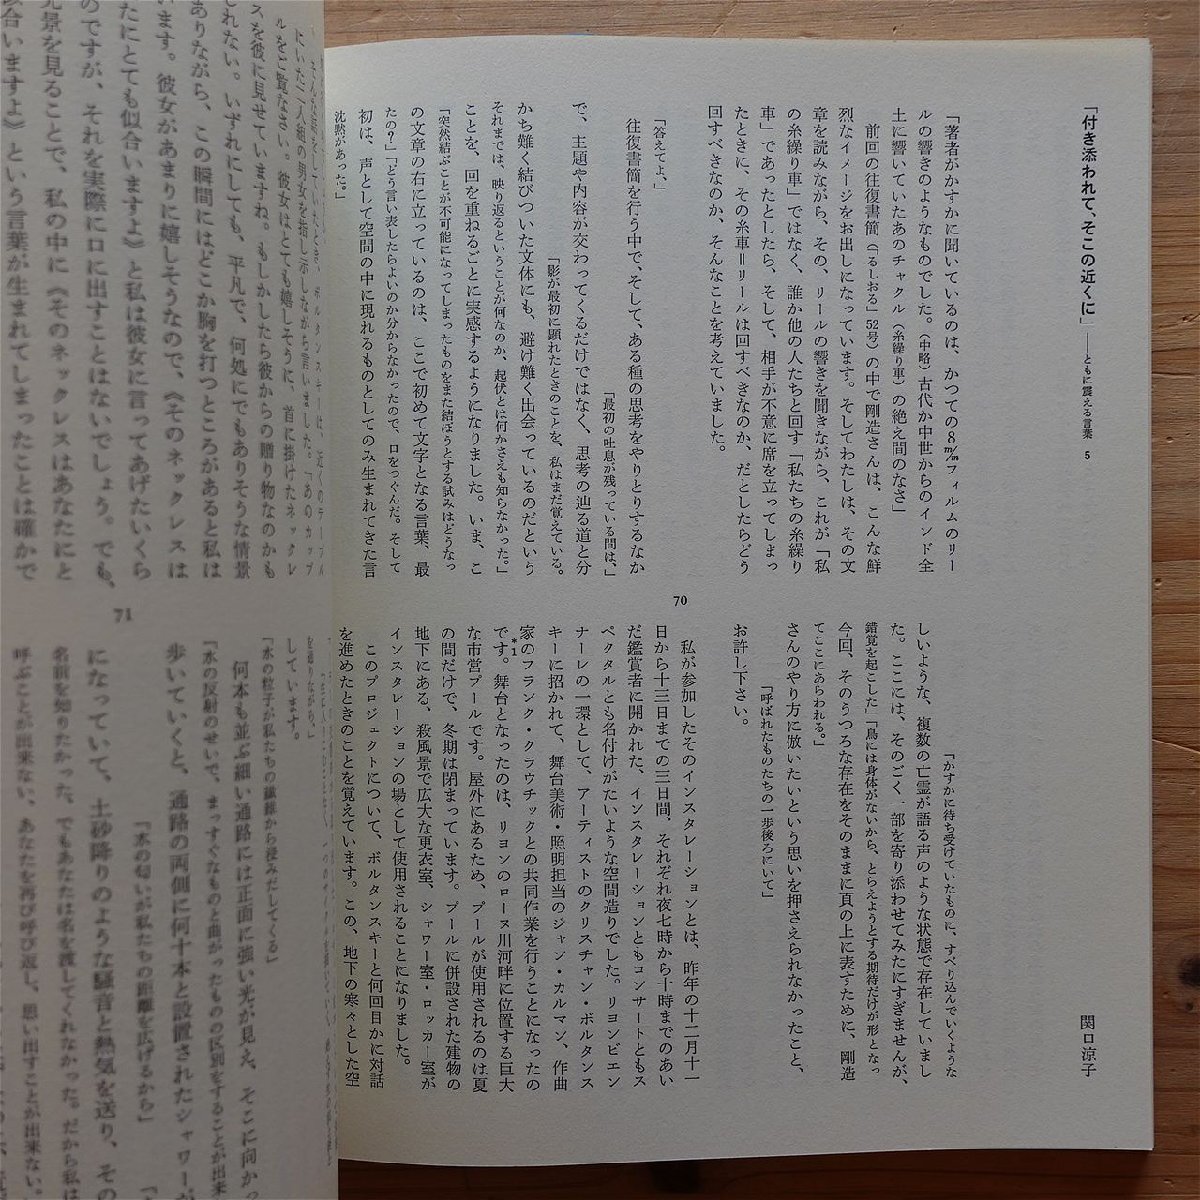 「付き添われて、そこの近くに」——ともに震える言葉 5
関口涼子
「著者がかすかに聞いているのは、かつての8m/mフィルムのリー
ルの響きのようなものでした。(中略)古代か中世からのインド全
土に響いていたあのチャクル(糸繰り車)の絶え間のなさ」
前回の往復書簡(「るしおる」52号)の中で剛造さんは、こんな鮮
烈なイメージをお出しになっています。そしてわたしは、その文
章を読みながら、その、リールの響きを聞きながら、これが「私
の糸繰り車」ではなく、誰か他の人たちと回す「私たちの糸繰り
車」であったとしたら、そして、相手が不意に席を立ってしまっ
たときに、その糸車=リールは回すべきなのか、だとしたらどう
回すべきなのか、そんなことを考えていました。
「答えてよ、」
往復書簡を行う中で、そして、ある種の思考をやりとりするなか
「最初の吐息が残っている間は、」
で、主題や内容が交わってくるだけではなく、思考の辿る道と分
「影が最初に顕れたときのことを、私はまだ覚えている。
かち難く結びついた文体にも、避け難く出会っているのだという
それまでは、映り返るということが何なのか、起伏とは何かさえも知らなかった。」
ことを、回を重ねるごとに実感するようになりました。いま、こ
「突然結ぶことが不可能になってしまったものをまた結ぼうとする試みはどうなっ
の文章の右に立っているのは、ここで初めて文字となる言葉、最
たの?」「どう言い表したらよいのか分からなかったので、口をつぐんだ。そして
初は、声として空間の中に現れるものとしてのみ生まれてきた言
沈黙があった。」
70
「かすかに待ち受けていたものに、すべり込んでいくような
しいような、複数の亡霊が語る声のような状態で存在していまし
た。ここには、そのごく一部を寄り添わせてみたにすぎませんが、
錯覚を起こした」「鳥には身体がないから、とらえようとする期待だけが形となっ
今回、そのうつろな存在をそのままに頁の上に表すために、剛造
てここにあらわれる。」
さんのやり方に放いたいという思いを押さえられなかったこと、
「呼ばれたものたちの一歩後ろにいて」
お許し下さい。
私が参加したそのインスタレーションとは、昨年の十二月十一
日から十三日までの三日間、それぞれ夜七時から十時までのあい
だ鑑賞者に開かれた、インスタレーションともコンサートともス
ペクタルとも名付けがたいような空間造りでした。リヨンビエン
ナーレの一環として、アーティストのクリスチャン・ボルタンス
キーに招かれて、舞台美術・照明担当のジャン・カルマン、作曲
家のフランク・クラウチックとの共同作業を行うことになったの
です。*1舞台となったのは、リヨンのローヌ川河畔に位置する巨大
な市営プールです。屋外にあるため、プールが使用されるのは夏
の間だけで、冬期は閉まっています。プールに併設された建物の
地下にある、殺風景で広大な更衣室、シャワー室・ロッカー室が
インスタレーションの場として使用されることになりました。
このプロジェクトについて、ボルタンスキーと何回目かに対話
を進めたときのことを覚えています。この、地下の寒々とした空
にいた二人組の男女を指し示しながら言いました。「あのカップ
ルをご覧なさい。彼女はとても嬉しそうに、首に掛けたネックレ
スを彼に見せていますね。もしかしたら彼からの贈り物なのかも
しれない。いずれにしても、平凡で、何処にでもありそうな情景
ありながら、この瞬間にはどこか胸を打つところがあると私は
います。彼女があまりに嬉しそうなので、《そのネックレスは
たにとても似合いますよ》と私は彼女に言ってあげたいくら
のですが、それを実際に口に出すことはないでしょう。でも、
光景を見ることで、私の中に《そのネックレスはあなたにと
合いますよ》という言葉が生まれてしまったことは確かで
71
を巡りながら」
しています。
「水の粒子が私たちの繊維から浸みだしてくる」
何本も並ぶ細い通路には正面に強い光が見え、そこに向かっ
「水の反射のせいで、まっすぐなものと曲がったものの区別をすることが出来
歩いていくと、通路の両側に何十本と設置されたシャワーが
「水の匂いが私たちの距離を広げるから」
になっていて、土砂降りのような騒音と熱気を送り、その
名前を知りたかった。でもあなたは名を渡してくれなかった。だから私は
呼ぶことが出来ない、あなたを再び呼び返し、思い出すことが出来ない。